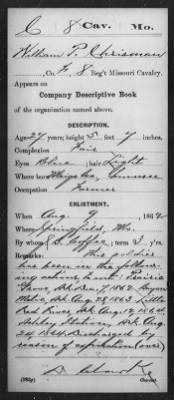 C 8 Cav. Mo.
William P. Chrisman
, Co. F, 8 Reg't Missouri Cavalry.
Appears on
Company Descriptive Book
of the organization named above.
DESCRIPTION.
Age 27 years; height 5 feet 7 inches.
Complexion Fair
Eyes Blue ; hair Light
Where born Co., Tennessee
Occupation Farmer
ENLISTMENT.
When Aug. 9, 1862
Where Springfield, Mo.
By whom ; term 3 y'rs.
Remarks: This soldier
has been in the follow-
ing actions to wit: Prairie
Grove, Ark. Dec. 7, 1862. Bayou
Metoe, Ark. Aug. 28, 1863. Little
Red River, Ark. 1864.
Ashley Station, Ark. Aug.
24, 1864. Discharged by
reason of expiration (over)
Copyist.